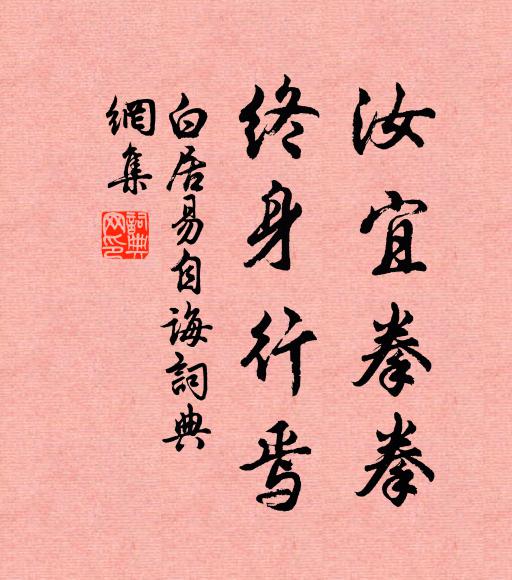 汝宜拳拳
終身行焉
白居易自誨詞典
網集
詞典
网印